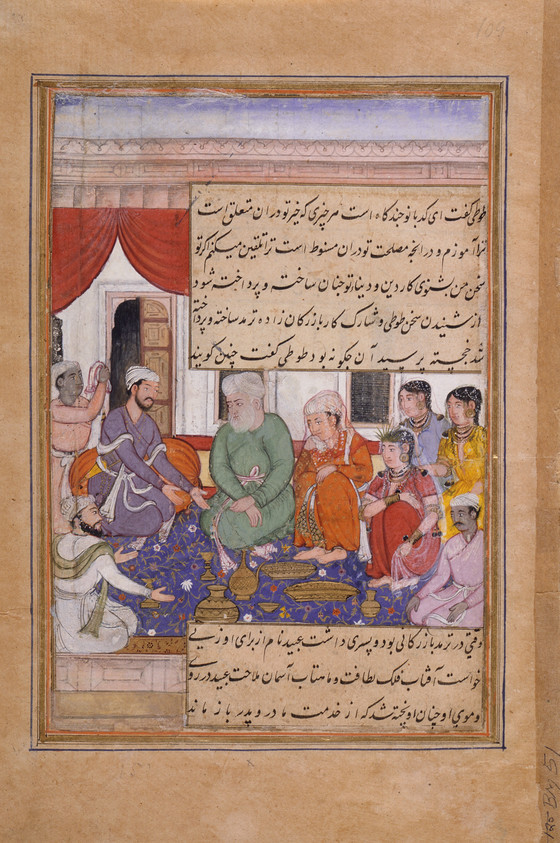 طوطی گفت ای کدبانو چندگاه است هر چیزی که خیر تو در آن متعلق است
ترا آموزم و در آنچه مصلحت تو در آن منوط است ترا تلقین میکنم اگر تو
سخن من بشنوی کار دین و دنیاء تو چنان ساخته و پرداخته شود
از شنیدن سخن طوطی و شارک کار بازرگان زاده ترمد ساخته و پرداخته
شد خجسته پرسید آن چگونه بود طوطی گفت چنین گویند
وقتی در ترمد بازرگانی بود و پسری داشت عبید نام از برای او زنی
خواست آفتاب فلک لطافت و ماهتاب آسمان ملاحت عبید در روی
و موی او چنان آویخته شد که از خدمت مادر و پدر باز ماند
109